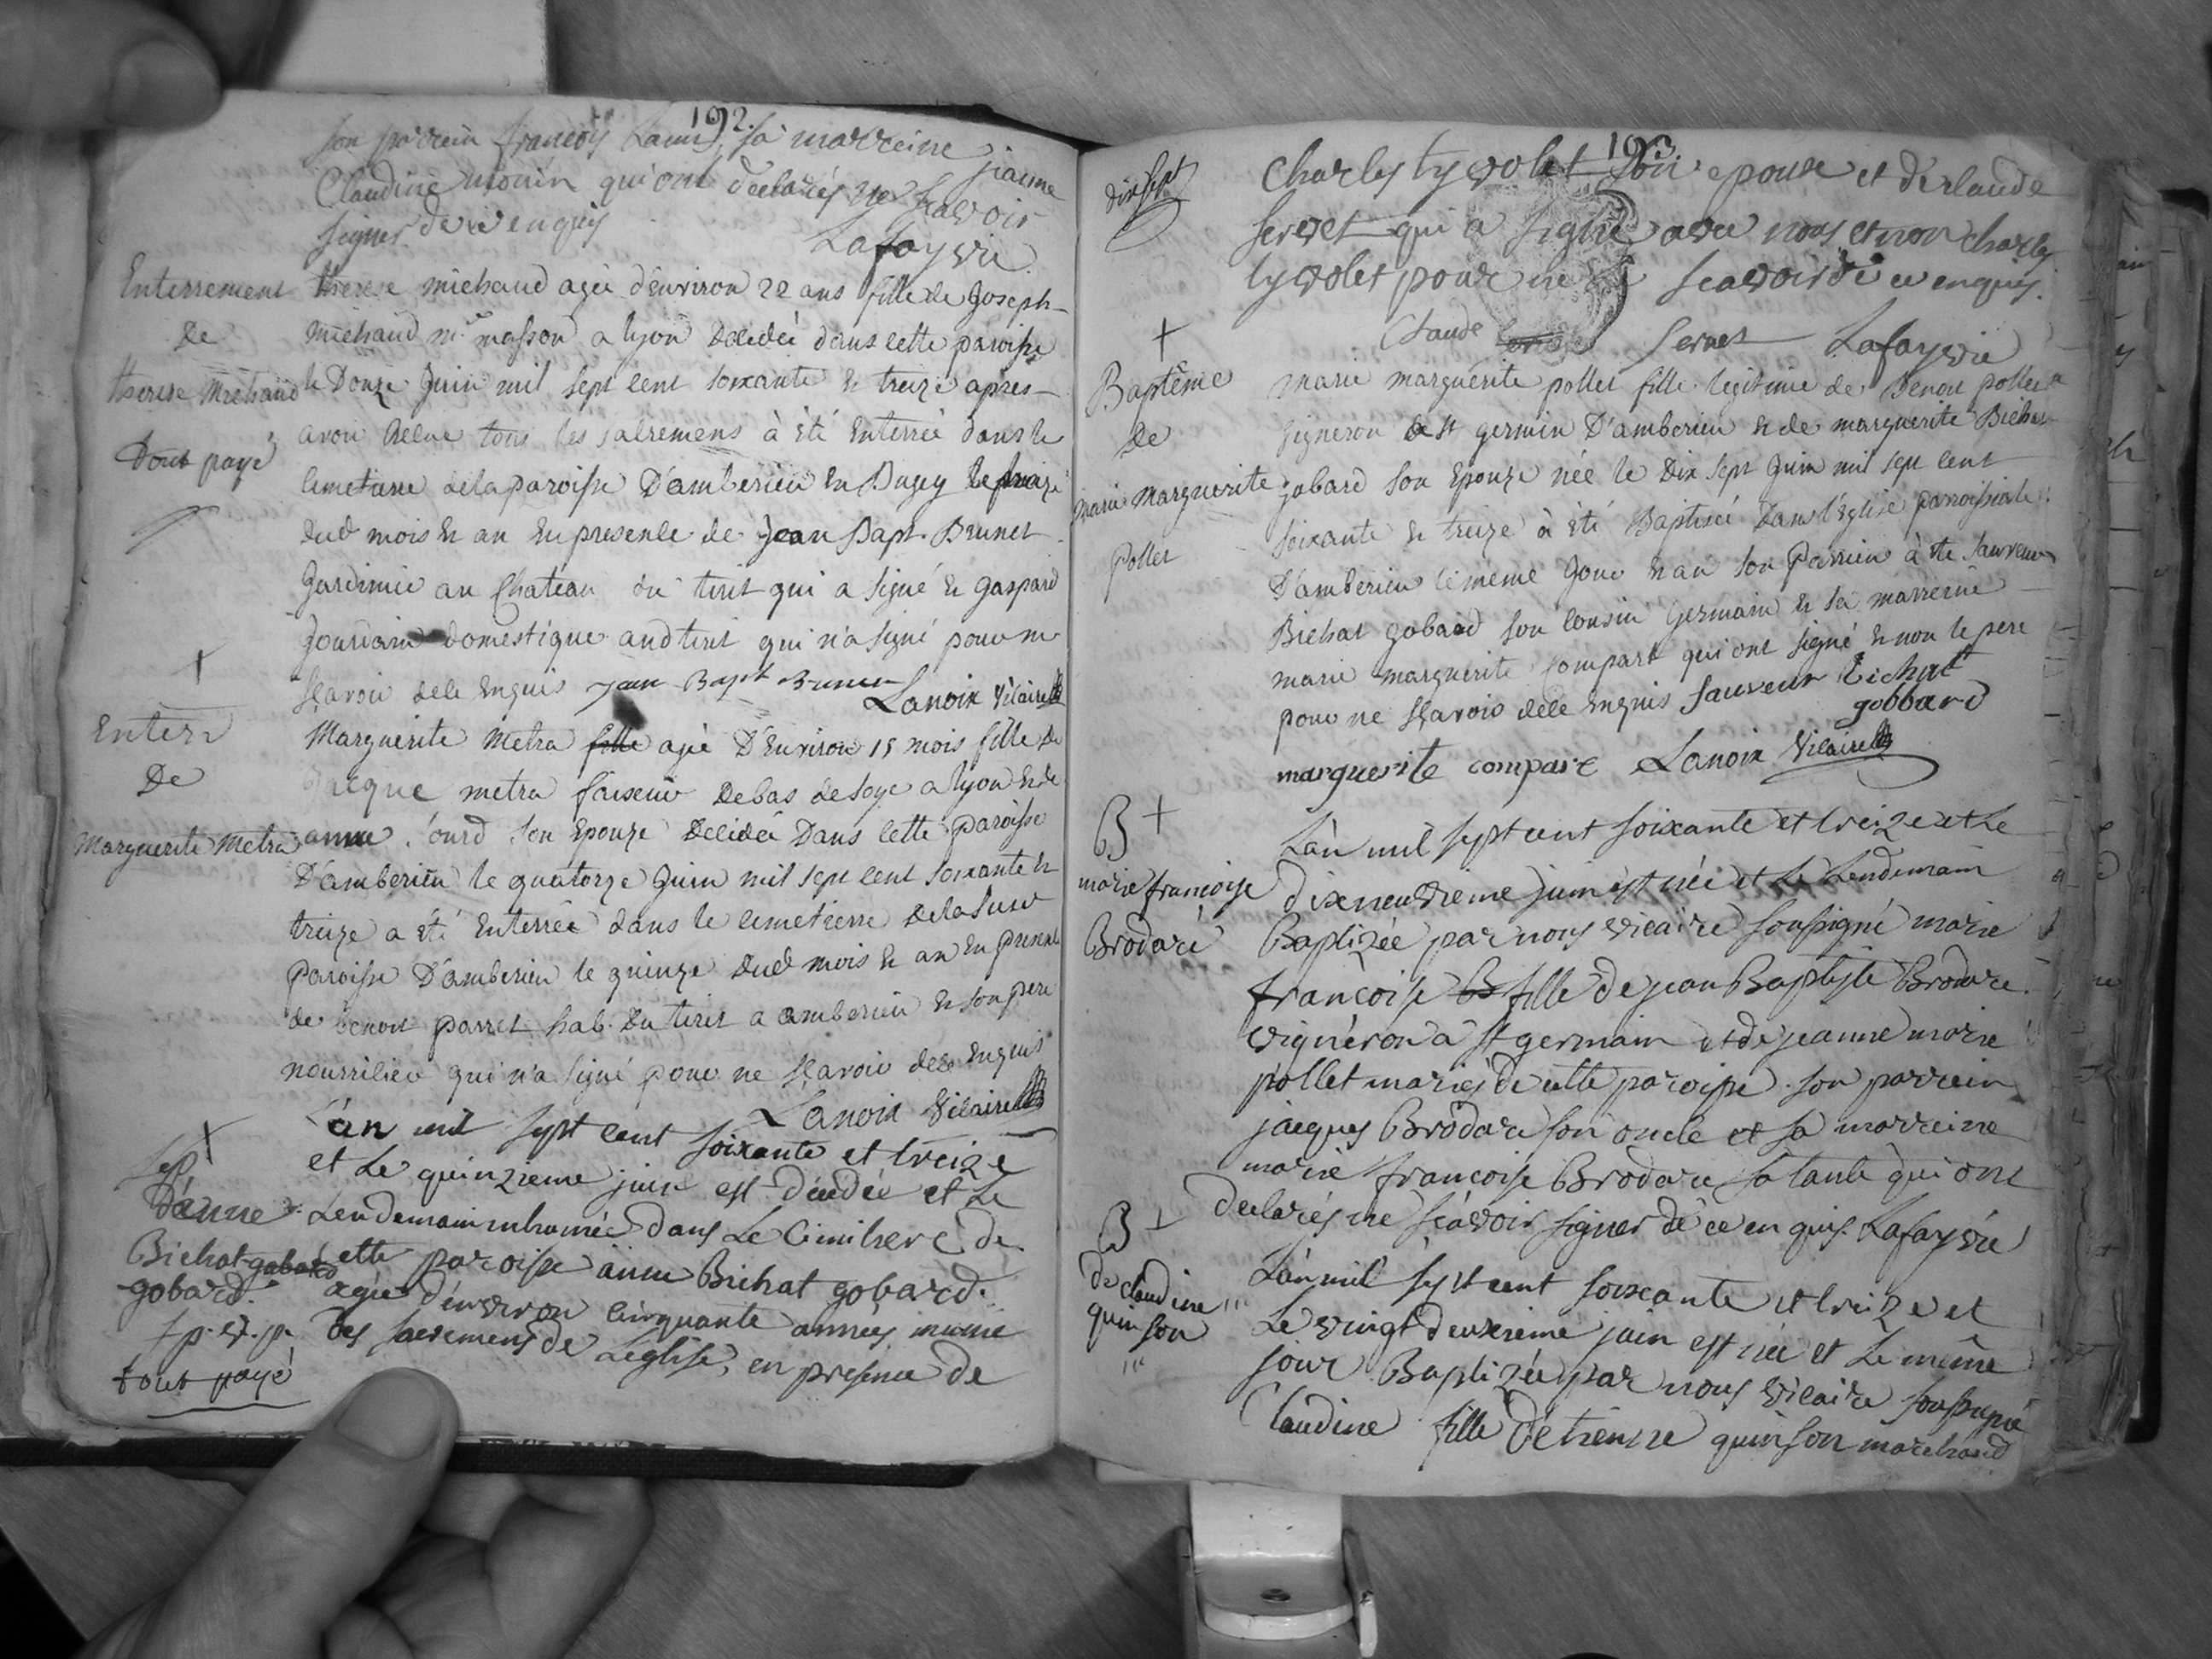 192.
son parrein françois sa marreine jeanne
Claudine qui ont declarés ne scavoir
signer de ce enquis
Lafayvie
Enterrement
de
therese Michaud
tout payé
therese michaud agée d'environ 22 ans fille de Joseph
michaud me masson a lyon decidée dans cette paroisse
le Douze Juin mil sept cent soixante & treize apres
avoir Recue tous les sacremens à été Enterrée dans le
cimetiere de la paroisse D'amberieu En Bugey le treize
dud mois & an En presence de Jean Bapt. Brunet
Jardinier au Chateau du tiret qui a signé & gaspard
Jourdain domestique aud tiret qui n'a signé pour ne
sçavoir dece Enquis Jean Bapt Brunet
Lanoix Vicaire
+
Enterr
De
Marguerite Metra
Marguerite Metra fille agée D'Environ 15 mois fille de
Jacque metra faiseur de bas de soye a lyon & de
anne son Epouze Decidée Dans cette paroisse
D'amberieu le quatorze Juin mil sept cent soixante &
treize a été Enterrée dans le cimetierre De la susd
paroisse D'amberieu le quinze dud mois & an En presence
de benoit parret hab. du tiret a amberieu & son pere
nourricier qui n'a signé pour ne sçavoir dece Enquis
Lanoix Vicaire
+
sep
D'anne
Bichat gobard
gobard.
tout payé
L'an mil sept cent soixante et treize
et Le quinzieme juin est decedée et Le
Lendemain inhumée dans Le Cimitiere de
cette paroisse anne Bichat gobard.
agée d'environ Cinquante années munie
des sacremens de Leglise, en presence de
193.
dix sept
Charles tyvolet son epoux et de claude
servet qui a signé avec nous et non charles
tyvolet pour ne scavoir de ce enquis.
Claude servet Lafayvie
+
Baptême
de
marie Marguerite
Pollet
marie marguerite pollet fille legitime de Benoit pollet
vigneron de st germin D'amberieu & de marguerite Bichat
gobard son Epouze née le Dix sept Juin mil sept cent
soixante & treize à été Baptisée Dans l'église paroissiale
D'amberieu le meme Jour & an son Parrien à été Sauveur
Bichat gobard son cousin Germain & sa marreine
marie marguerite compart qui ont signé & non le pere
pour ne sçavoir dece Enquis Sauveur bichat
gobbard
marguerite compare Lanoix Vicaire
B +
marie françoise
Brodare
L'an mil sept cent soixante et treize et Le
dixneuvieme juin est née et Le Lendemain
Baptizée par nous vicaire soussigné marie
françoise B fille de jean Baptiste Brodare
vigneron a st germain et de jeanne marie
pollet mariés de cette paroisse. son parrein
jacques Brodare son oncle et sa marreine
marie françoise Brodare sa tante qui ont
declarés ne scavoir signer de ce enquis. Lafayvie
B +
de claudine
quinson
L'an mil sept cent soixante et treize et
Le vingt deuxieme juin est née et Le même
jour Baptizée par nous vicaire soussigné
Claudine fille d'etienne quinson marchand